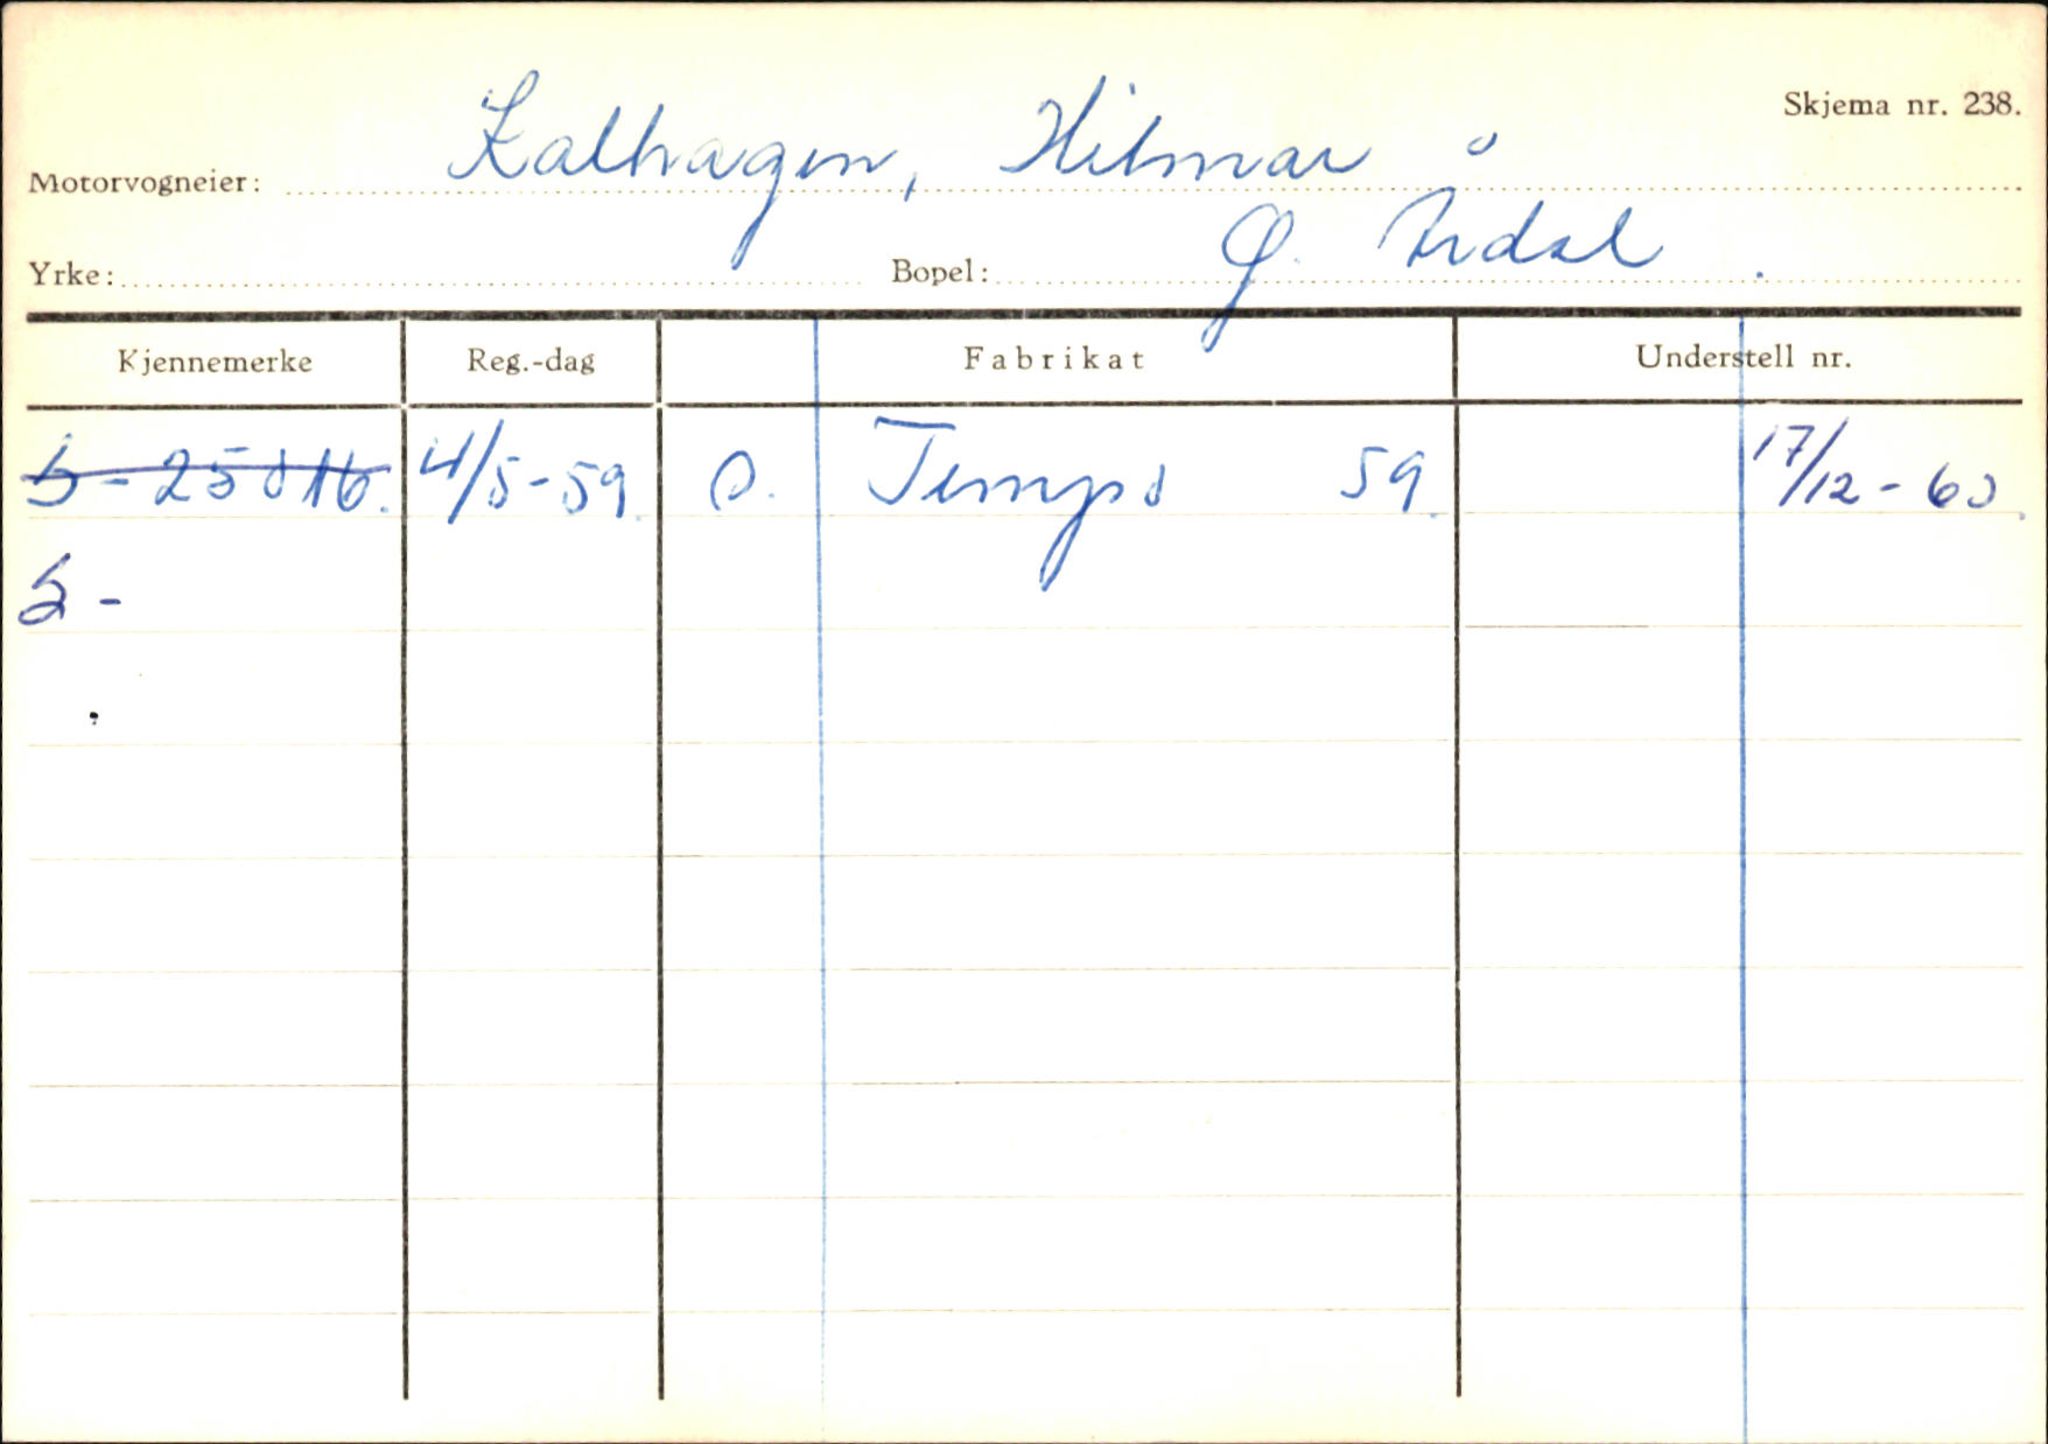 Skjema nr. 238.
Motorvogneier: Kalhagen, Hilmar
Yrke: Bopel: Ø. Årdal.
Kjennemerke Reg.-dag Fabrikat Understell nr.
S-25016. 4/5-59. O. Tempo 59. 17/12-60.
S-